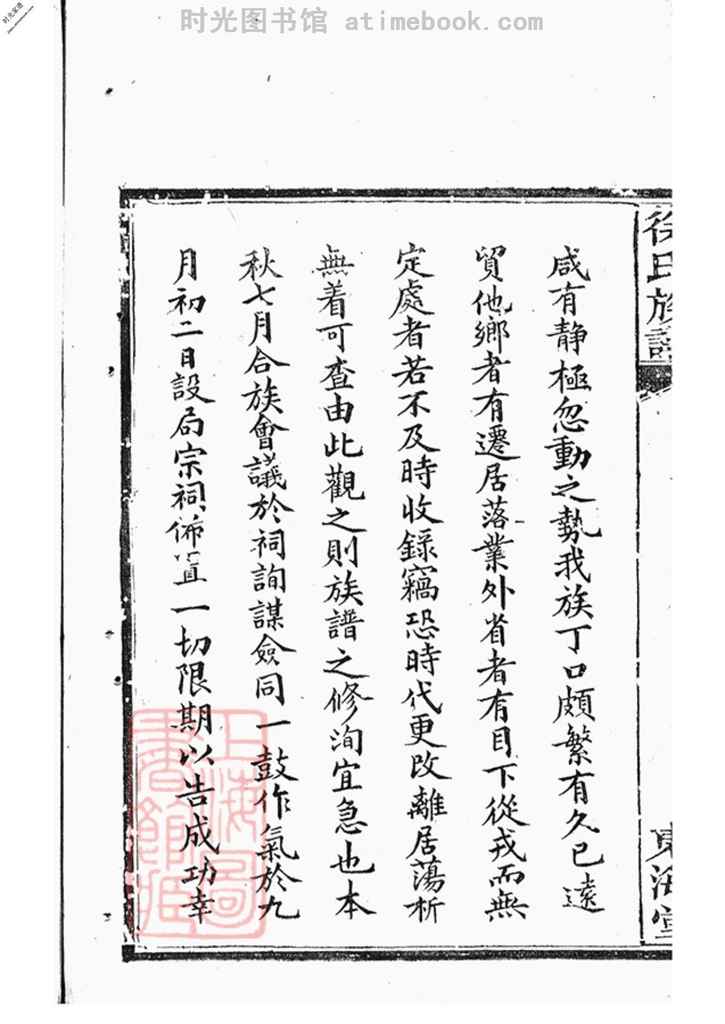 时光图书馆 atimebook.com
徐氏族譜
東海堂
咸有静極忽動之勢我族丁口頗繁有久已遠
貿他鄉者有遷居落業外省者有目下從戎而無
定處者若不及時收錄竊恐時代更改離居蕩析
無着可查由此觀之則族譜之修洵宜急也本
秋七月合族會議於祠詢謀僉同一鼓作氣於九
月初二日設局宗祠佈置一切限期以告成功幸
上海圖書館藏